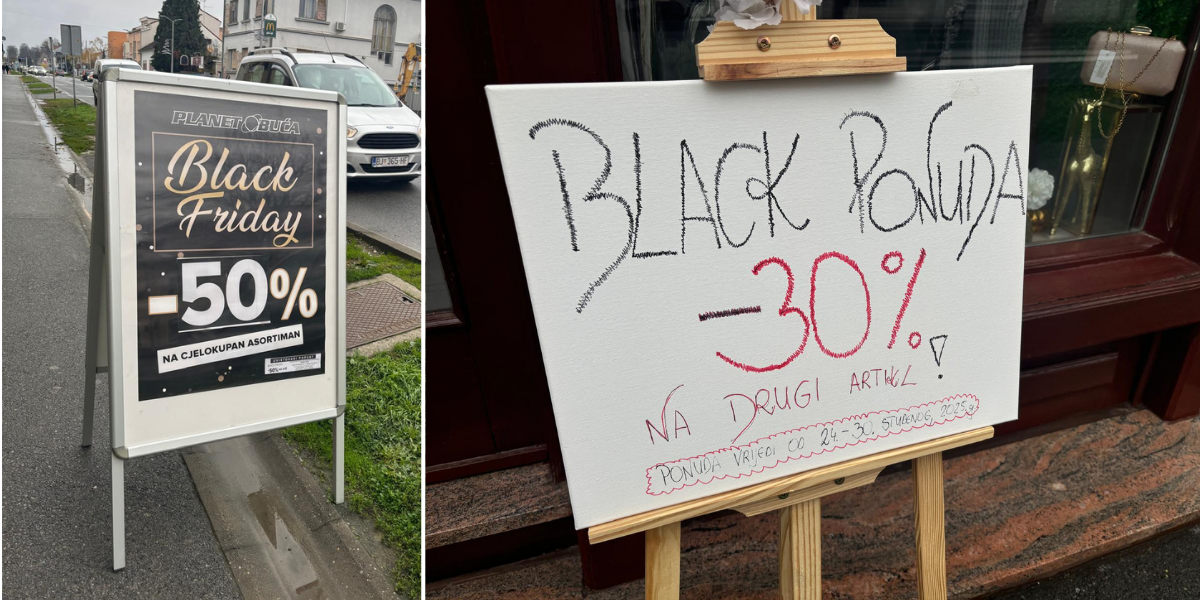 PLANET OBUĆA
Black
Friday
-50%
NA CJELOKUPAN ASORTIMAN
BJ 365-HF
BLACK PONUDA
-30%
NA DRUGI ARTIKL!
PONUDA VRIJEDI OD 24.-30. STUDENOG, 2025.g